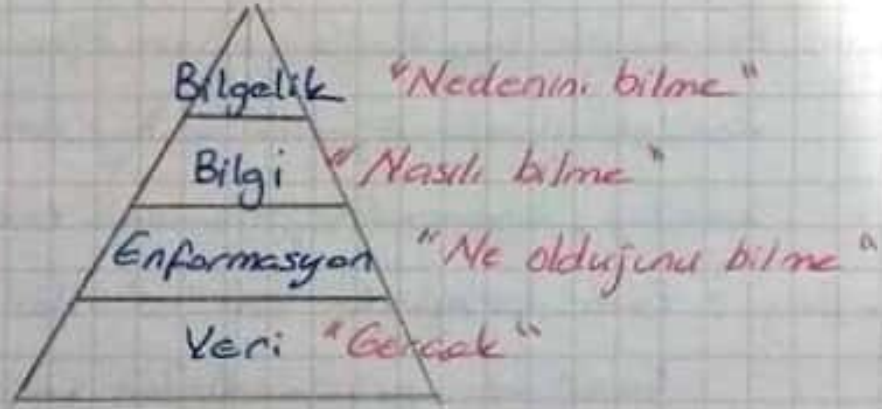 Bilgelik "Nedenini bilme"
Bilgi "Nasılı bilme"
Enformasyon "Ne olduğunu bilme"
Veri "Gerçek"